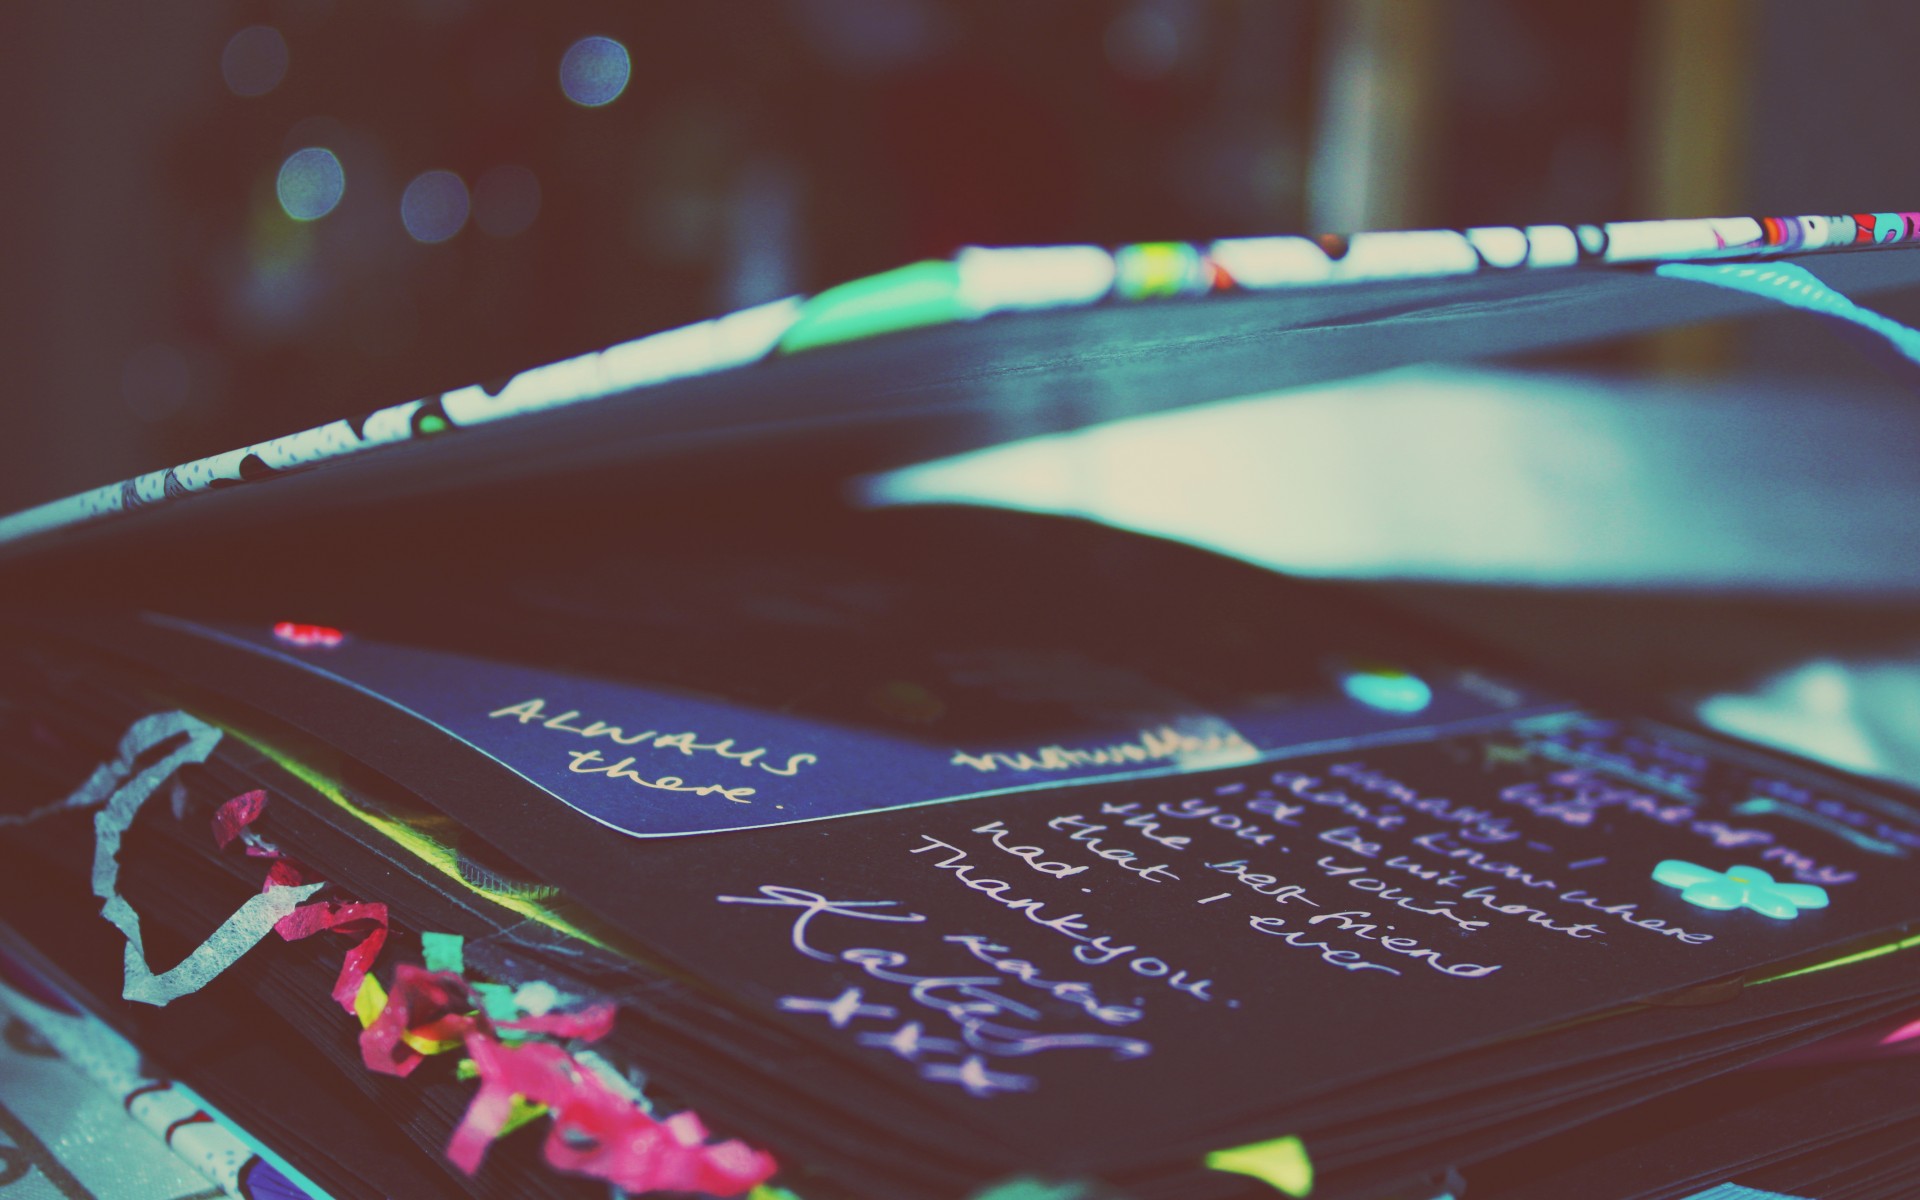 ALWAYS
there.
trustworthy
of my
life.
Honestly - I
don't know where
I'd be without
you. You're
the best friend
that I ever
had.
Thankyou.
Katie
xxx